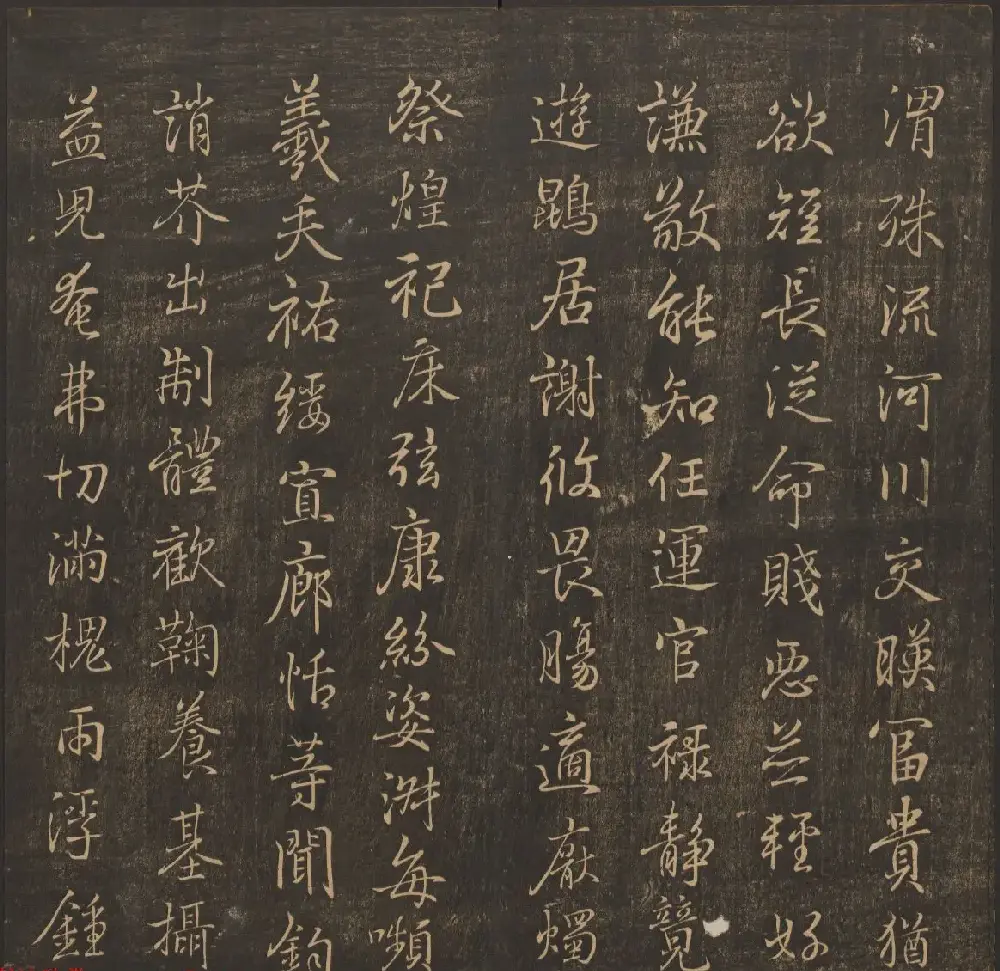 渭殊流河川交暎冨貴猶
欲短長從命賤惡並輕好
謙敬能知任運官禄静競
遊鵾居謝攸畏腸適厭燭
祭煌祀床弦康紛姿淑每嚬
羲矢祐綏宣廊恬等聞鈞
誚芥出制體歡鞠養基攝
益皃奄弗切滿槐雨浮鍾